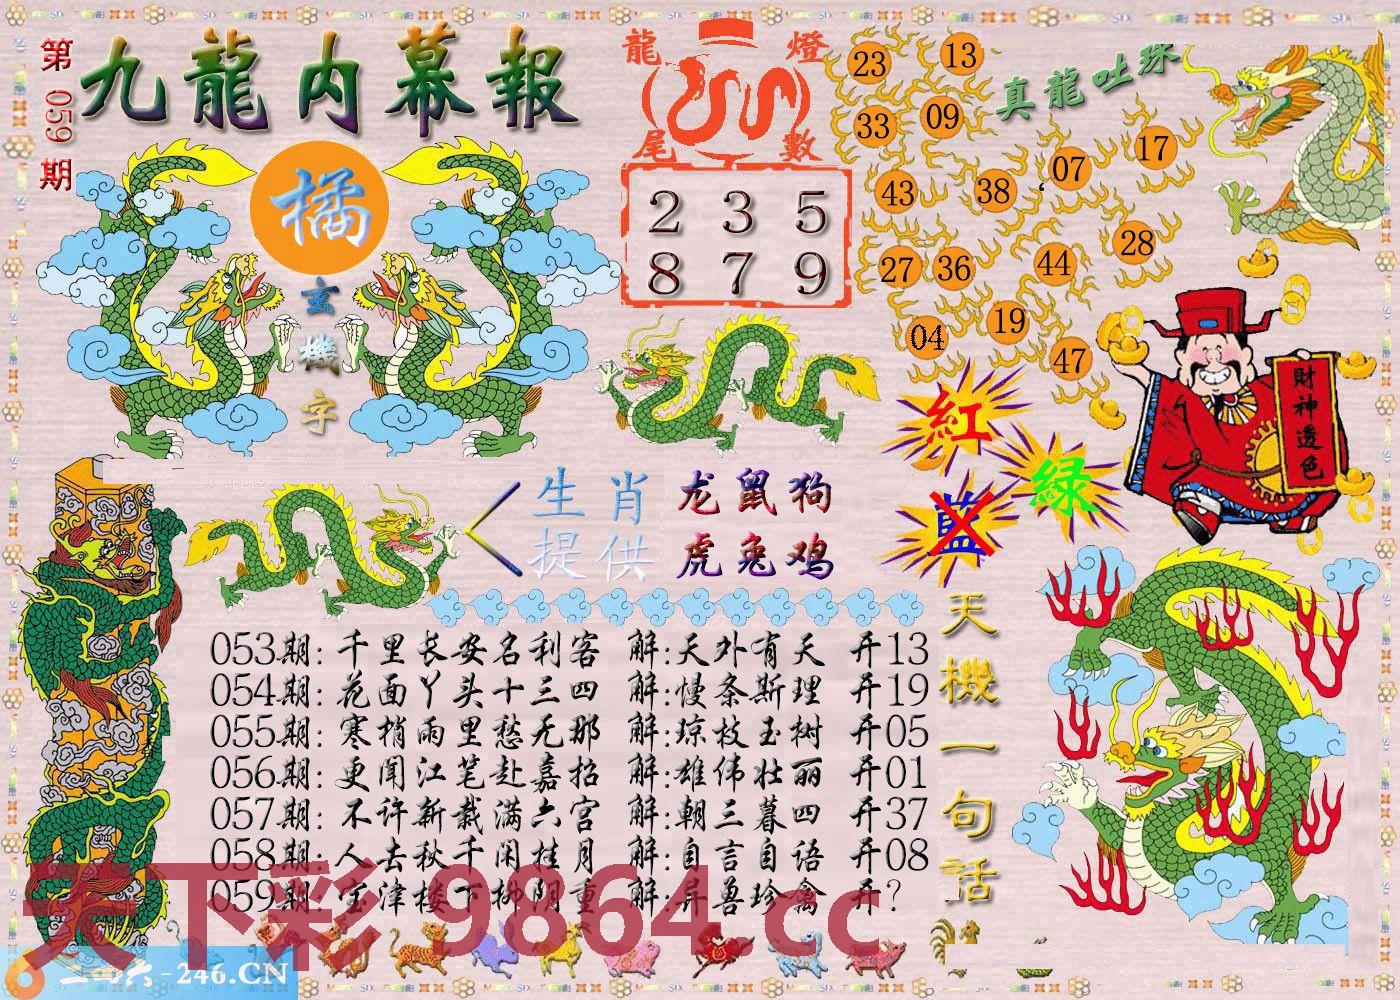 第059期
九龍内幕報
橘
玄機字
龍燈
尾數
2 3 5
8 7 9
真龍吐珠
23 13
33 09
43 38 07 17
27 36 44 28
04 19 47
紅
綠
藍
財神透色
生肖 龙鼠狗
提供 虎兔鸡
053期: 千里长安名利客 解:天外有天 开13
054期: 花面丫头十三四 解:慢条斯理 开19
055期: 寒梢雨里愁无那 解:琼枝玉树 开05
056期: 更闻江笔赴嘉招 解:雄伟壮丽 开01
057期: 不许新载满六宫 解:朝三暮四 开37
058期: 人去秋千闲挂月 解:自言自语 开08
059期: 宝津楼下柳阴重 解:异兽珍禽 开?
天機一句話
天下彩 9864.cc
二四六-246.CN